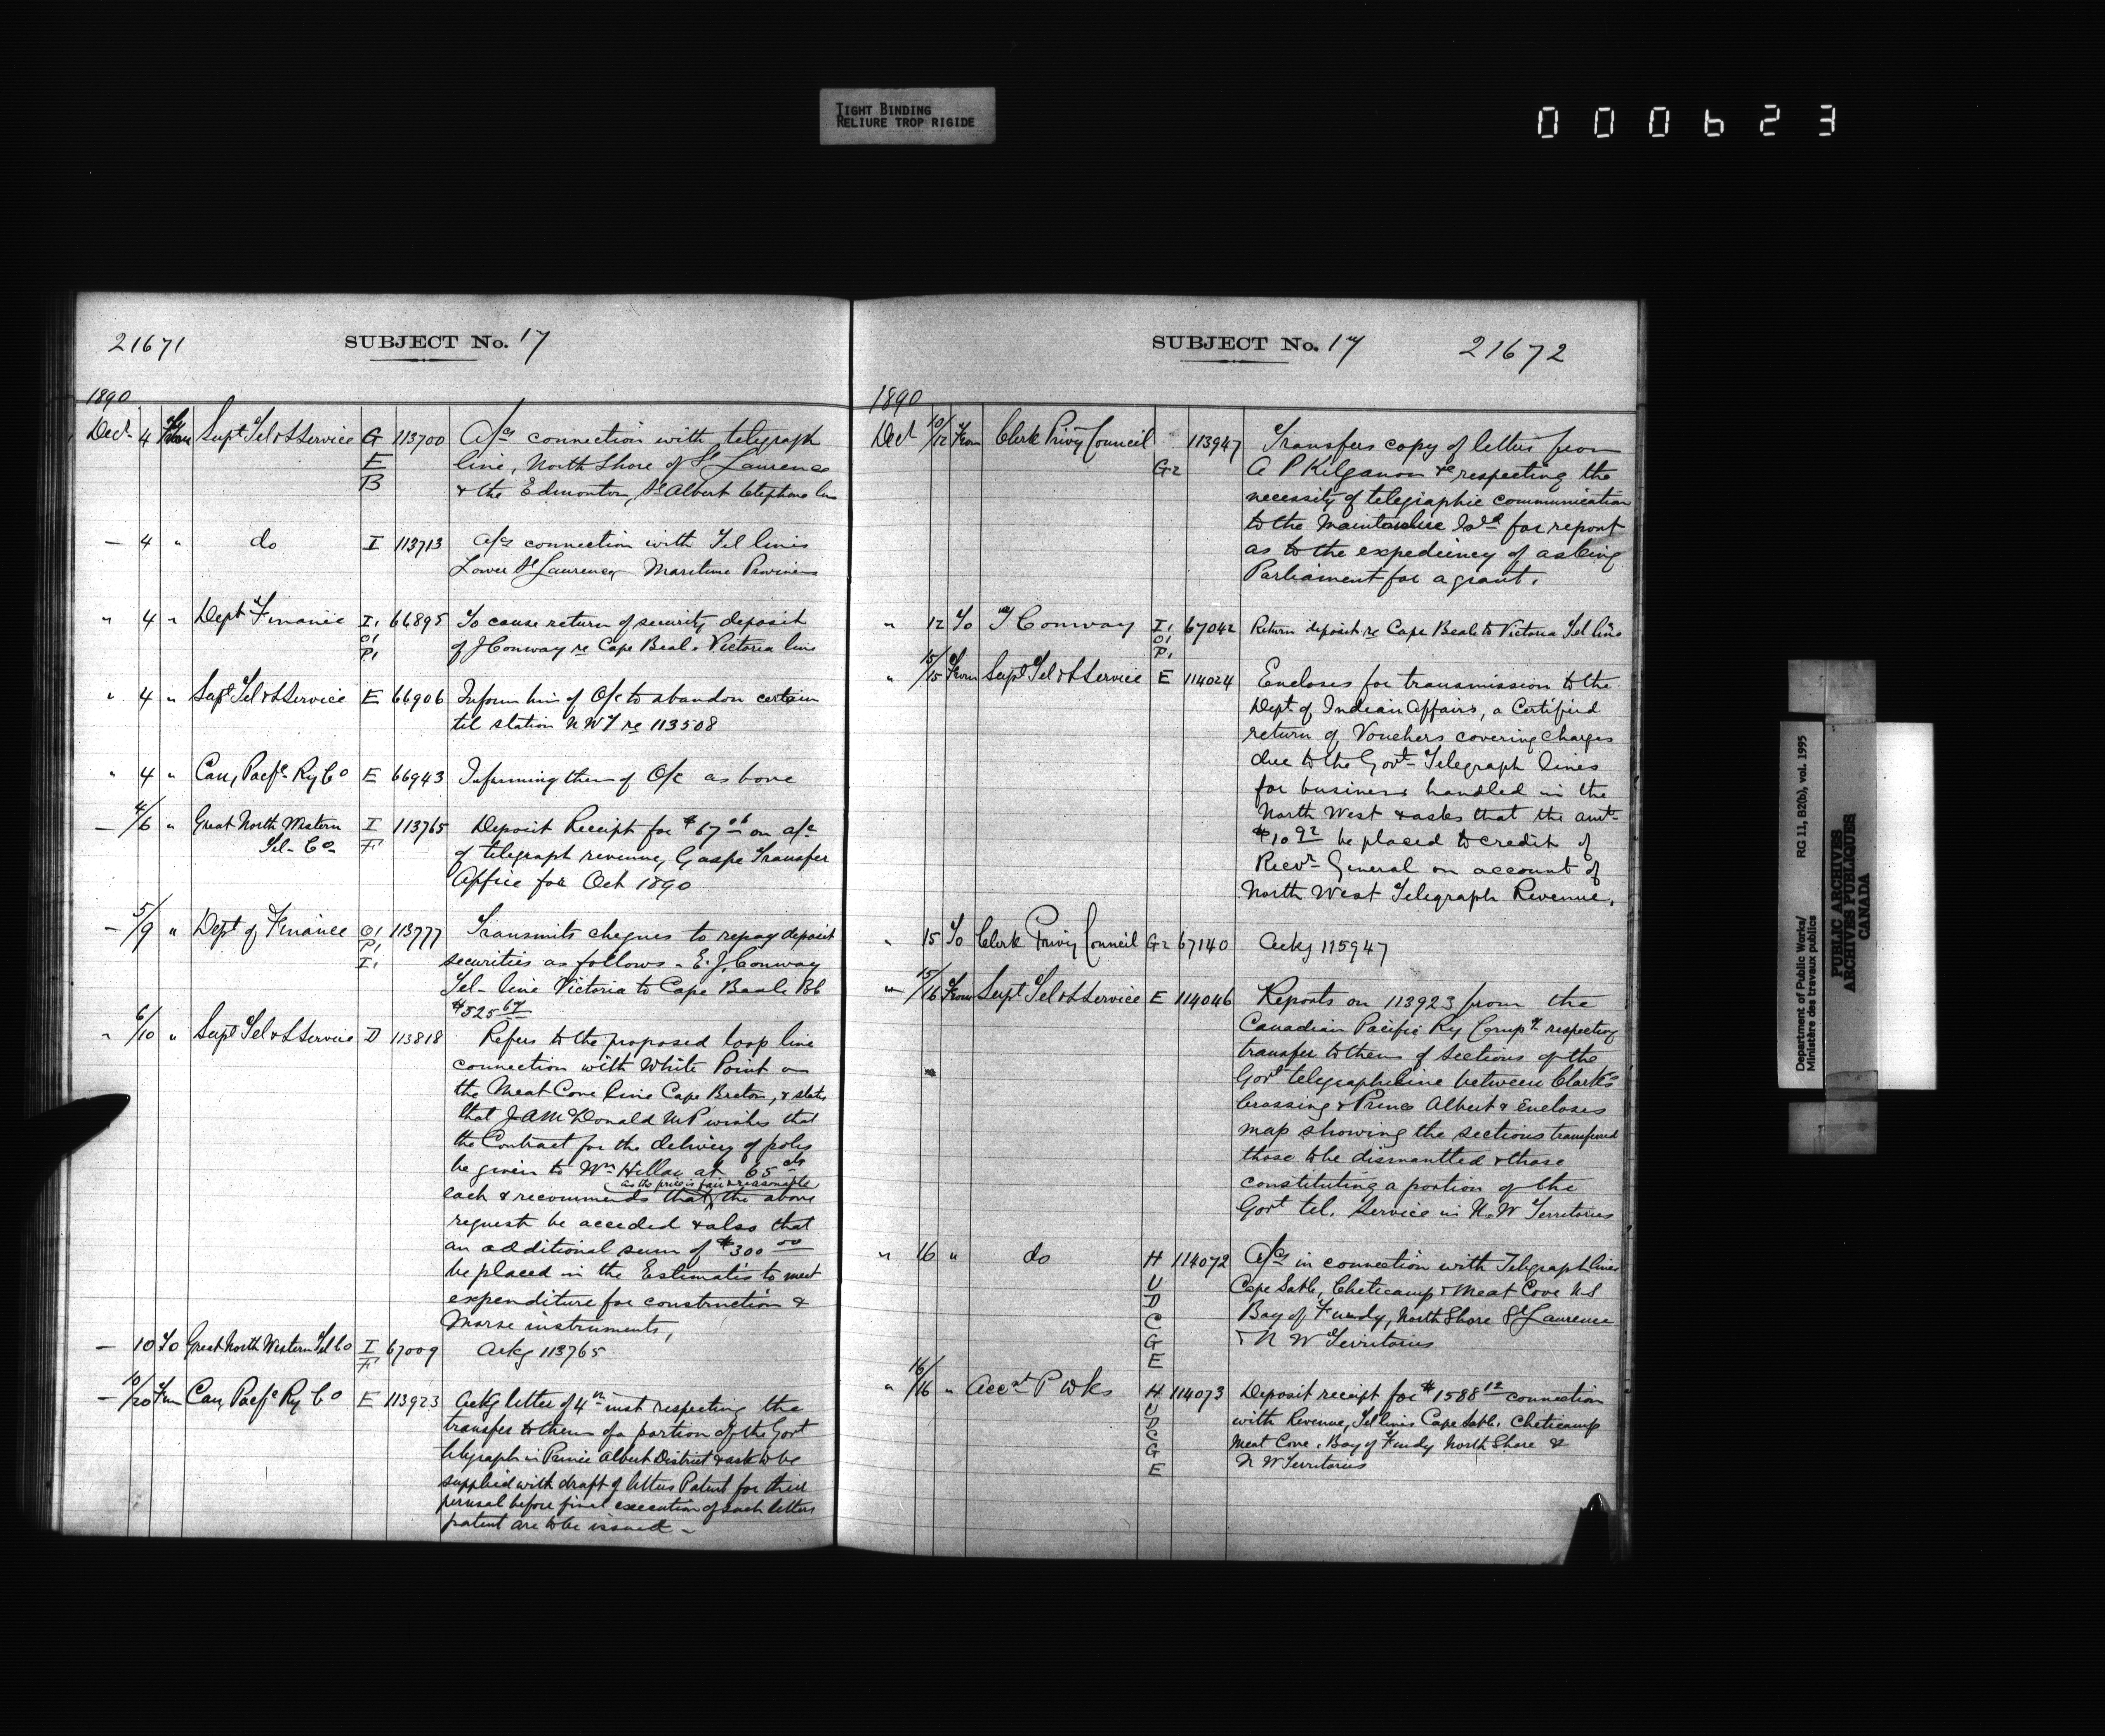 TIGHT BINDING
RELIURE TROP RIGIDE
000623
21671
SUBJECT No. 17
1890
Decr 4 From Supt Tel & S Service G 113700 A/cs connection with telegraph
E line, North Shore of St Laurence
B & the Edmonton, St Albert telephone line
— 4 " do I 113713 A/cs connection with Tel lines
Lower St Laurence Maritime Provinces
" 4 " Dept Finance I1 66895 To cause return of security deposit
O1 of J Conway re Cape Beal. Victoria line
P1
" 4 " Supt Tel & S Service E 66906 Inform him of O/c to abandon certain
tel station N W T re 113508
" 4 " Can, Pacfc Ry Co E 66943 Informing them of O/c as bove
— 4/6 " Great North Western I 113765 Deposit Receipt for $67 06 on a/c
Tel- Co F of telegraph revenue, Gaspe Transfer
Office for Oct 1890
— 5/9 " Dept of Finance O1 113777 Transmits cheques to repay deposit
P1 securities as follows - E. J. Conway
I1 Tel- line Victoria to Cape Beale
$525 67
" 6/10 " Supt Tel & S Service D 113818 Refers to the proposed loop line
connection with White Point on
the Meat Cove line Cape Breton, & states
that J A McDonald MP wishes that
the Contract for the delivery of poles
be given to Wm at 65 cts
as the price is fair & reasonable
each & recommends that the above
request be acceded & also that
an additional sum of $300 00
be placed in the Estimates to meet
expenditure for construction &
Morse instruments,
— 10 To Great North Western Tel Co I 67009 Ackg 113765
F
— 10/20 From Can, Pacfc Ry Co E 113923 Ackg letter of 4th inst respecting the
transfer to them of a portion of the Govt
telegraph in Prince Albert District & ask to be
supplied with draft of letters Patent for their
perusal before final execution of such letters
patent are to be issued -
SUBJECT No. 17
21672
1890
Decr 10/12 From Clerk Privy Council 113947 Transfers copy of letter from
G2 A P Kilganon &c respecting the
necessity of telegraphic communication
to the for report
as to the expediency of asking
Parliament for a grant.
" 12 To Conway I1 67042 Return deposit re Cape Beale to Victoria Tel line
O1
P1
" 15/15 From Supt Tel & S Service E 114024 Encloses for transmission to the
Dept of Indian Affairs, a Certified
return of Vouchers covering charges
due to the Govt- Telegraph lines
for business handled in the
North West & asks that the amt-
$10 92 be placed to credit of
Recvr- General on account of
North West Telegraph Revenue.
" 15 To Clerk Privy Council G2 67140 Ackg 115947
" 15/16 From Supt Tel & S Service E 114046 Reports on 113923 from the
Canadian Pacific Ry Compy respecting
transfer to them of sections of the
Govt telegraph line between Clark's
Crossing & Prince Albert & Encloses
map showing the sections transferred
those to be dismantled & those
constituting a portion of the
Govt tel. Service in N. W Territories
" 16 " do H 114072 A/cs in connection with Telegraph lines
U Cape Sable, Cheticamp & Meat Cove N S
D Bay of Fundy, North Shore St Laurence
C & N W Territories
G
E
" 16/16 " Acct P Wks H 114073 Deposit receipt for $1588 12 connection
U with Revenue, Tel lines Cape Sable, Cheticamp
D Meat Cove, Bay of Fundy North Shore &
C N W Territories
G
E
Department of Public Works/
Ministère des travaux publics
RG 11, B2(b), vol. 1995
PUBLIC ARCHIVES
ARCHIVES PUBLIQUES
CANADA